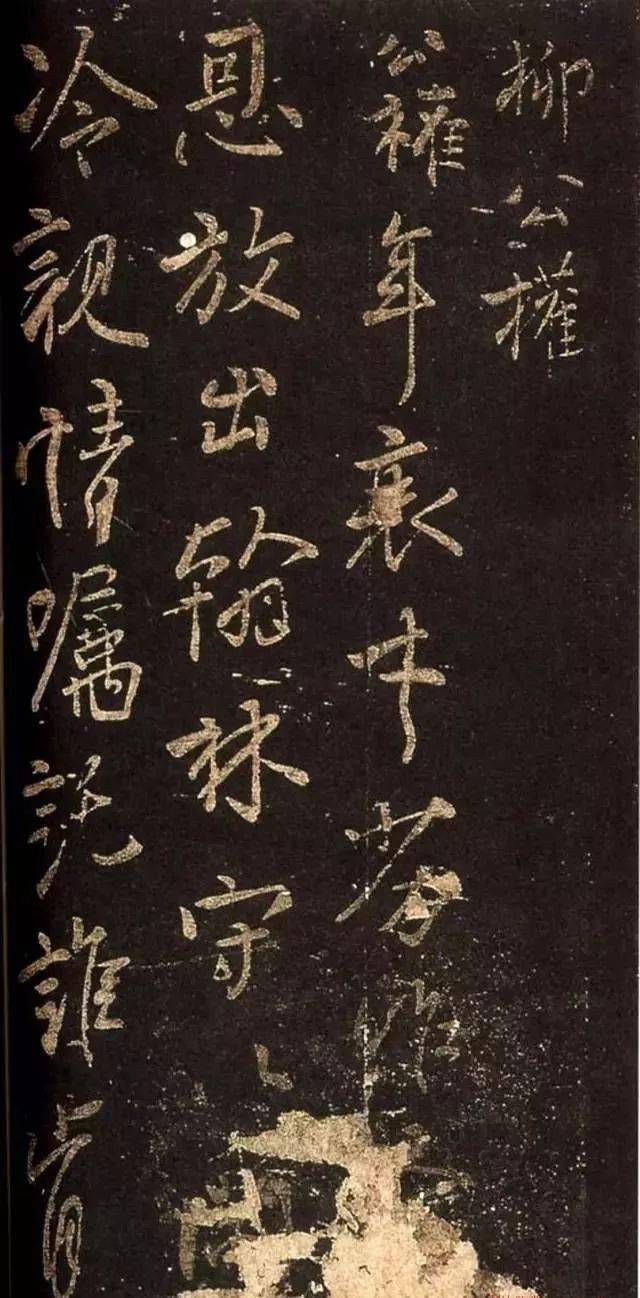 柳公權
公權年衰才劣昨
恩放出翰林守
冷親情嘱託誰肯